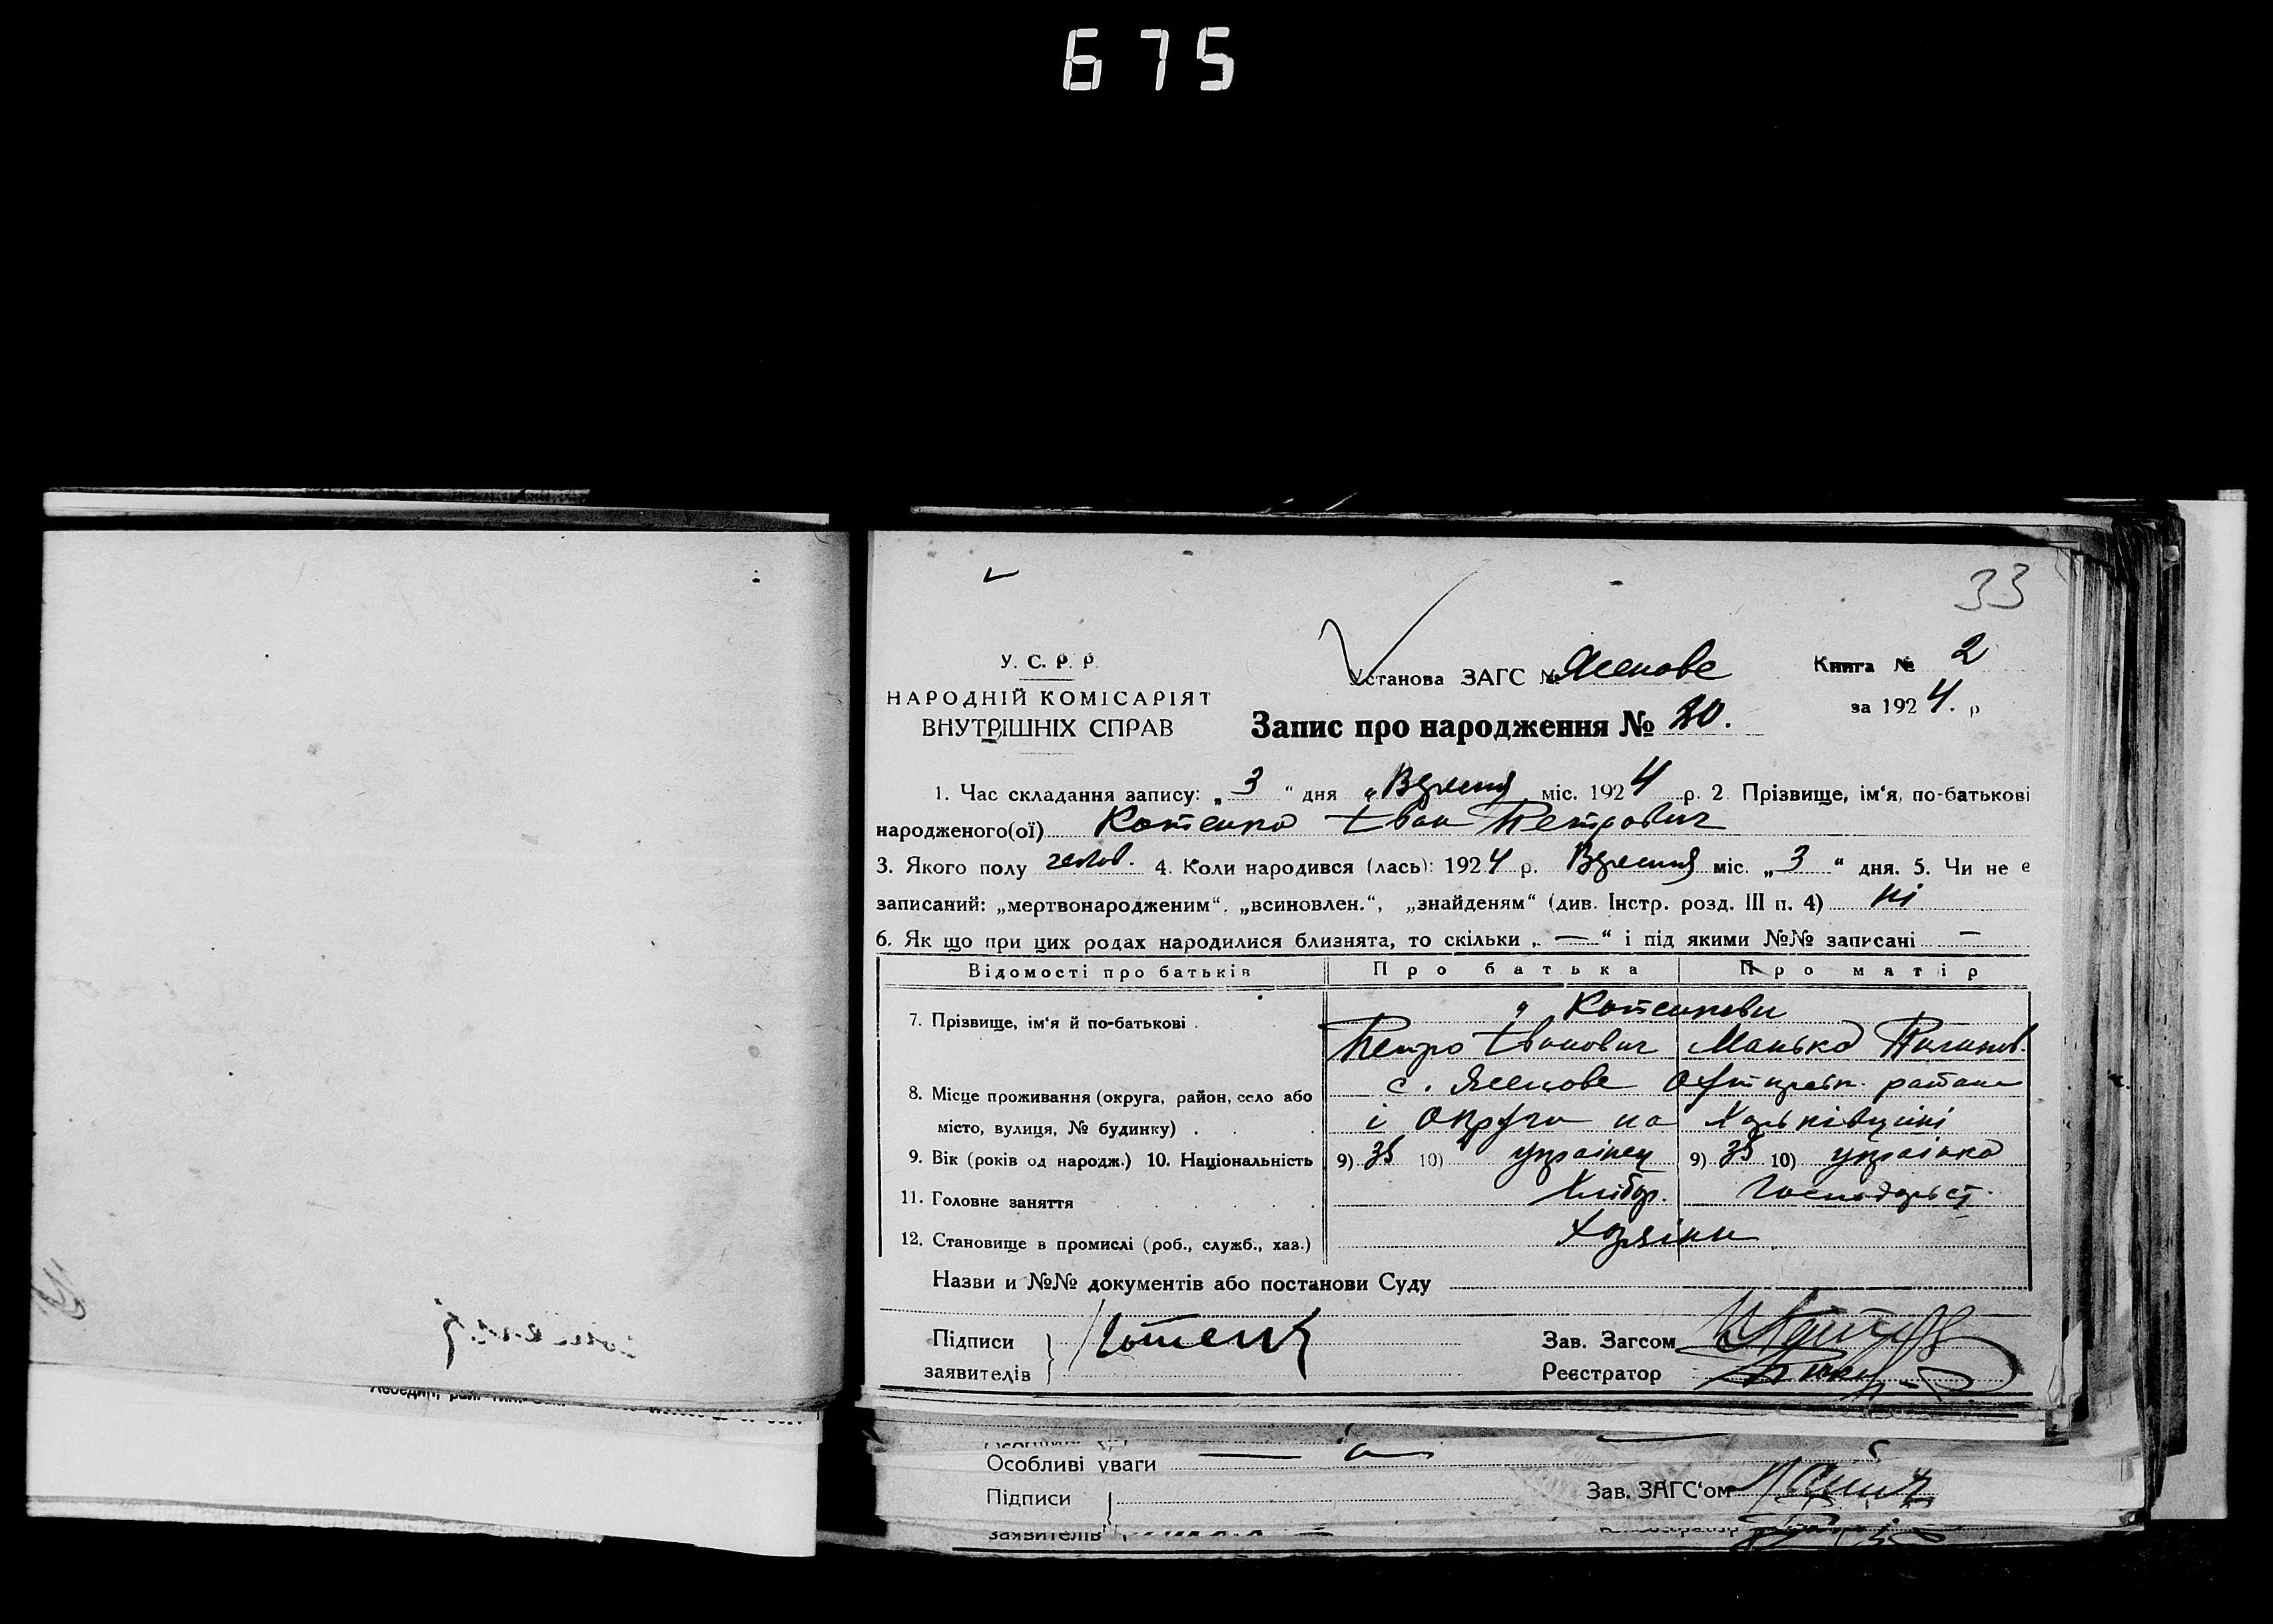 675
33
У. С. Р. Р.
НАРОДНІЙ КОМІСАРІЯТ
ВНУТРІШНІХ СПРАВ
Установа ЗАГС № Ясенове
Книга № 2
за 1924. р
Запис про народження № 20.
1. Час складання запису: „3“ дня „Вересня міс. 1924 р. 2. Прізвище, ім‘я, по-батькові
народженого(ої) Котенко Іван Петрович
3. Якого полу чолов. 4. Коли народився (лась): 1924 р. Вересня міс. „3“ дня. 5. Чи не є
записаний: „мертвонародженим“. „всиновлен.“, „знайденям“ (див. Інстр. розд. III п. 4) ні
6. Як що при цих родах народилися близнята, то скільки „ — “ і під якими №№ записані —
Відомості про батьків Про батька Про матір
7. Прізвище, ім‘я й по-батькові . Котенкови
Петро Іванович
8. Місце проживання (округа, район, село або с. Ясенове
місто, вулиця, № будинку) . і Округи на Харьківщині
9. Вік (років од народж.) 10. Національність 9) 35 10) українец 9) 35 10) українка
11. Головне заняття Хлібор. Господарьст.
12. Становище в промислі (роб., служб., хаз.) Хозяіни
Назви и №№ документів або постанови Суду
Підписи Котенк Зав. Загсом
заявителів Реєстратор
Особливі уваги
Підписи Зав. ЗАГС‘ом
заявителів